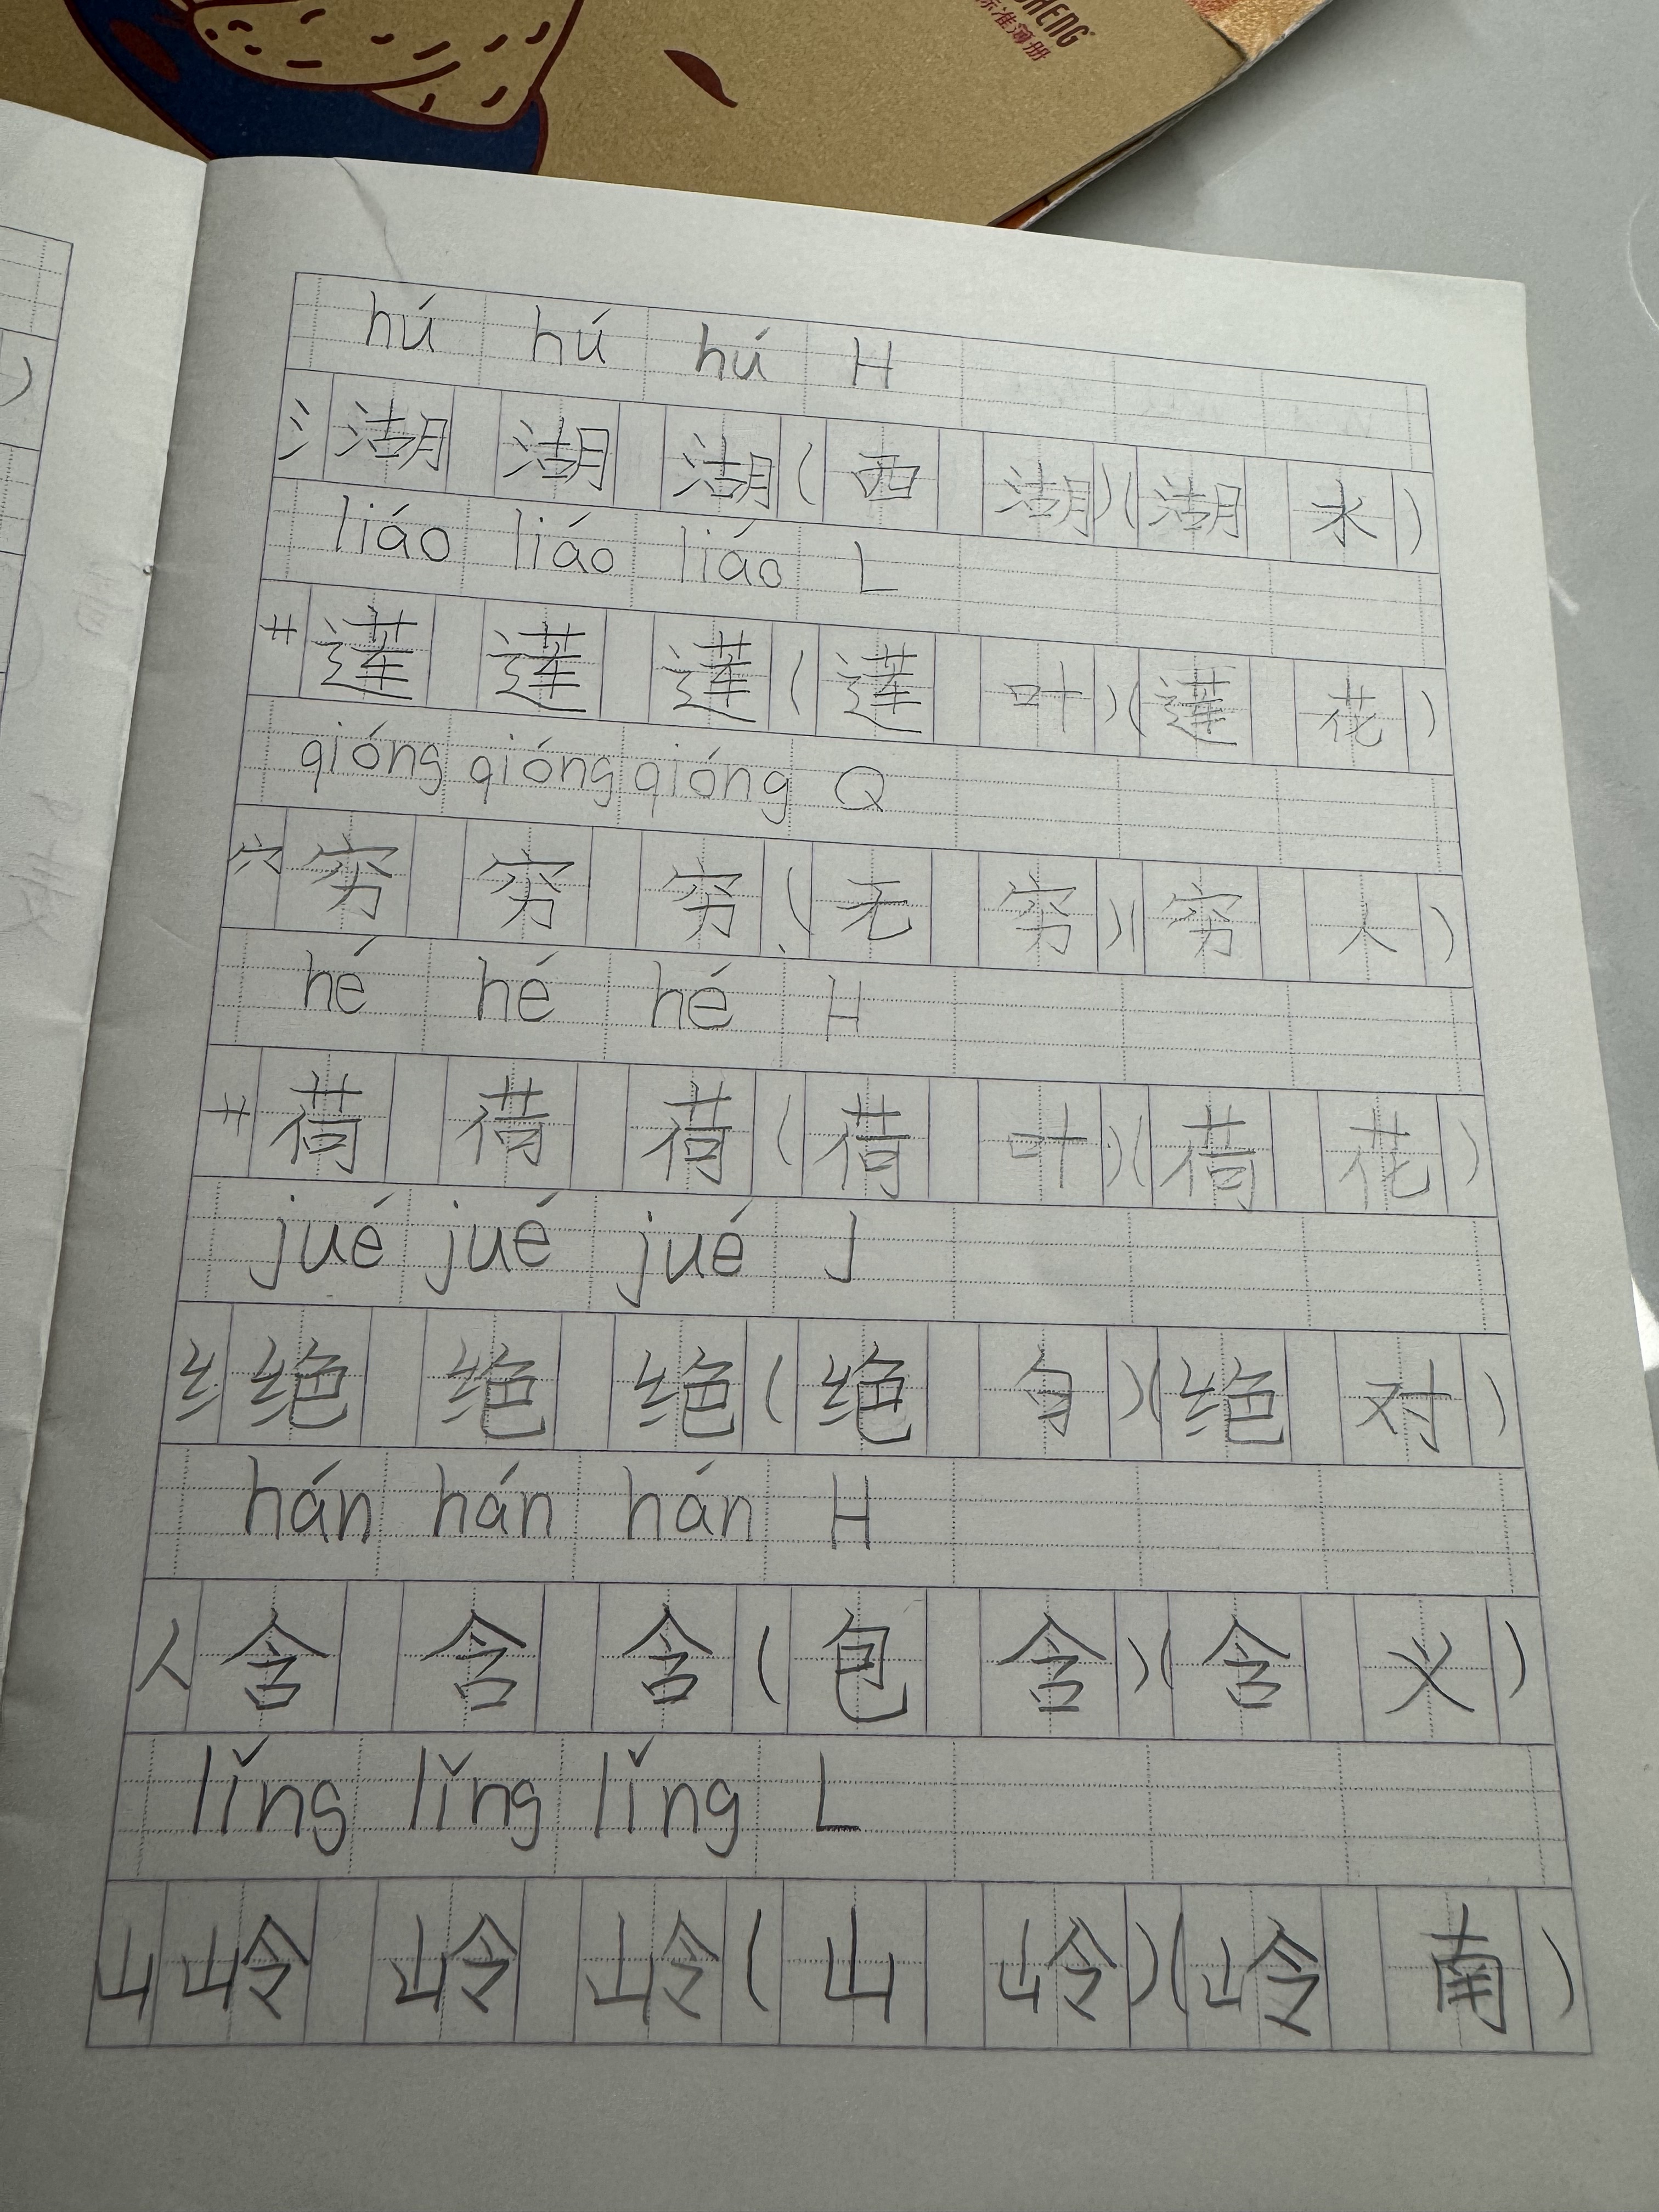 SHENG
标准簿册
hú hú hú H
氵湖 湖 湖(西 湖)(湖 水)
liáo liáo liáo L
艹蓮 蓮 蓮(蓮 叶)(蓮 花)
qióng qióng qióng Q
穴穷 穷 穷(无 穷)(穷 人)
hé hé hé H
艹荷 荷 荷(荷 叶)(荷 花)
jué jué jué J
纟绝 绝 绝(绝 句)(绝 对)
hán hán hán H
人含 含 含(包 含)(含 义)
lǐng lǐng lǐng L
山岭 岭 岭(山 岭)(岭 南)